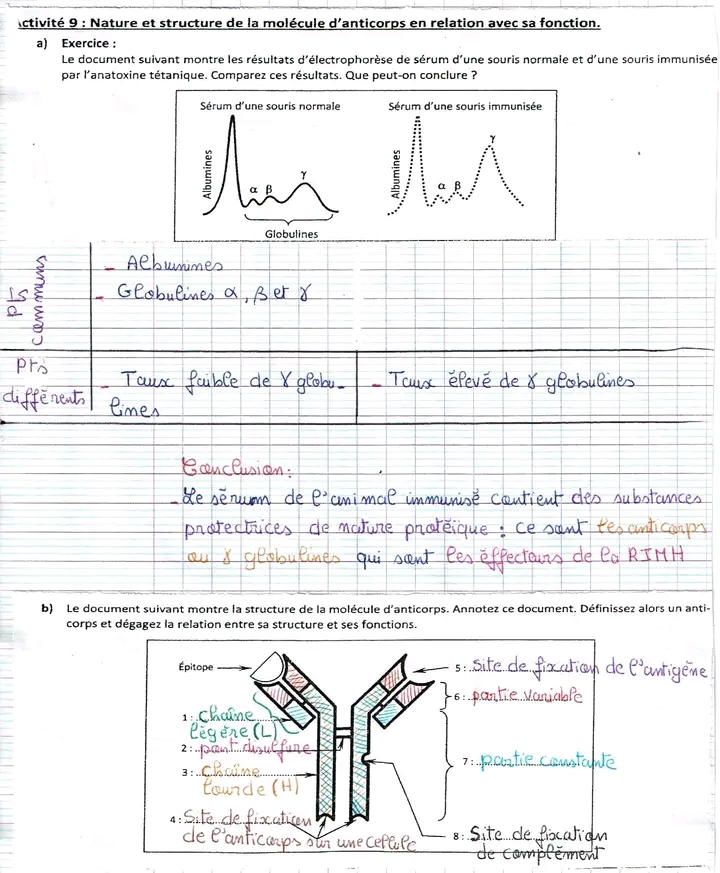 ctivité 9 : Nature et structure de la molécule d'anticorps en relation avec sa fonction.
a) Exercice :
Le document suivant montre les résultats d'électrophorèse de sérum d'une souris normale et d'une souris immunisée
par l'anatoxine tétanique. Comparez ces résultats. Que peut-on conclure ?
Sérum d'une souris normale
Albumines
α β γ
Globulines
Sérum d'une souris immunisée
Albumines
α β γ
pts communs
- Albumines
- Globulines α, β et γ
pts différents
- Taux faible de γ globu-
lines
- Taux élevé de γ globulines
Conclusion :
- Le sérum de l'animal immunisé contient des substances
protectrices de nature protéique : ce sont les anticorps
ou γ globulines qui sont les effecteurs de la RIMH
b) Le document suivant montre la structure de la molécule d'anticorps. Annotez ce document. Définissez alors un anti-
corps et dégagez la relation entre sa structure et ses fonctions.
Épitope
1 : chaîne
légère (L)
2 : pont disulfure
3 : chaîne
lourde (H)
4 : Site de fixation
de l'anticorps sur une cellule
5 : Site de fixation de l'antigène
6 : partie variable
7 : partie constante
8 : Site de fixation
de complément